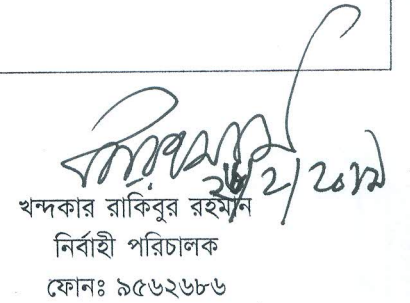 খন্দকার রাকিবুর রহমান
নির্বাহী পরিচালক
ফোনঃ ৯৫৬২৬৮৬